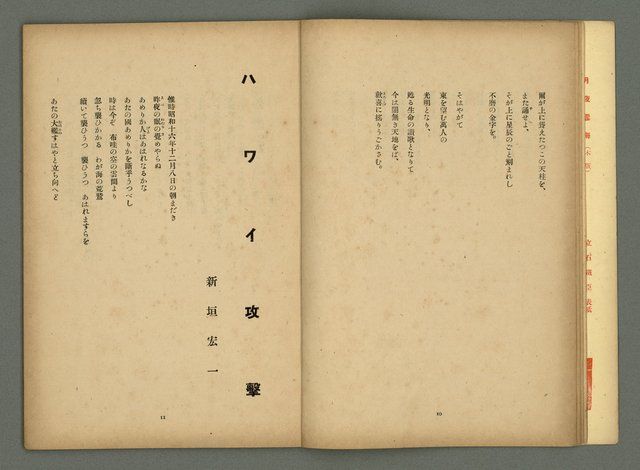 月夜
立石鐵臣表紙
爾が上に聳えたつこの天柱を、
また誦せよ、
そが上に星辰のごと刻まれし
不磨の金字を。
そはやがて
東を望む萬人の
光明となり、
甦る生命の讃歌となりて
今は闇無き天地をば、
歡喜に搖りうごかさむ。
10
ハワイ攻擊
新垣宏一
惟時昭和十六年十二月八日の朝まだき
昨夜の眠の覺めやらぬ
あめりか人はあはれなるかな
あたの國あめりかを斷乎うつべし
時は今ぞ 布哇の空の雲間より
忽ち襲ひかかる わが海の荒鷲
續いて襲ひうつ 襲ひうつ あはれますらを
あたの大艦すはやと立ち向へど
11